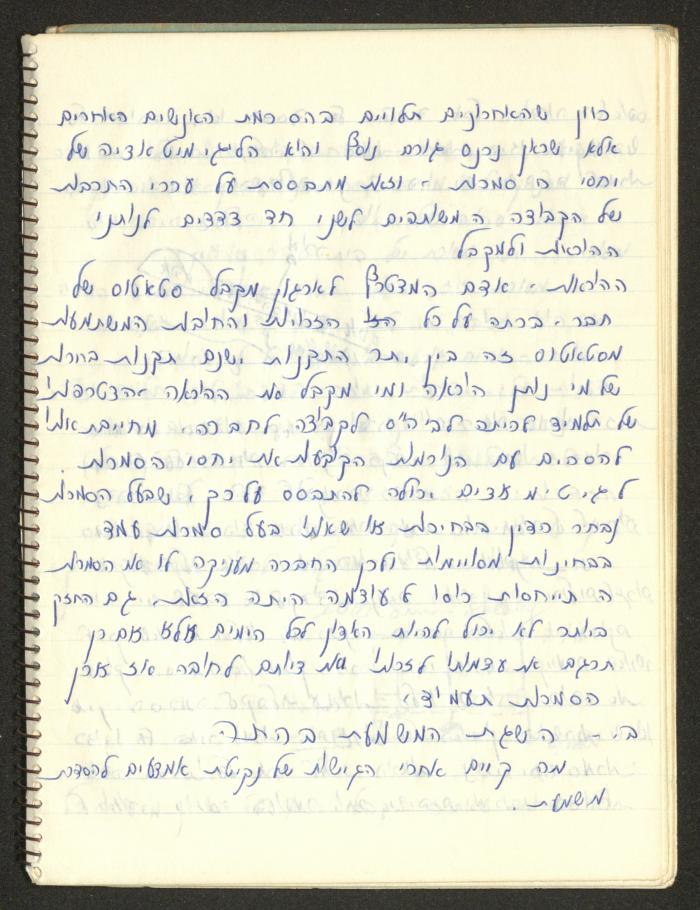 כוון שהאחרונים תלויים בהסכמת האנשים האחרים
אלא שכאן נכנס גורם נוסף והיא הלגיטימציה של
יחסי הסמכות - וזאת מתבססת על ערכי התרבות
של הקבוצה המשותפים לשני הצדדים לנותני
ההוראות ולמקבל
ההוראות. אדם המצטרף לארגון מקבל סטאטוס של
חבר. ברתה על כל הזכויות והחובות המשתמעות
מסטאטוס זה בין יתר התקנות ישנם תקנות ברורות
של מי נותן הוראה ומי מקבל את ההוראה הצטרפותו
של תלמיד לכיתה לביה"ס לקבוצה לחברה מחייבת אותו
להסכים עם הנורמות הקובעות את יחסי הסמכות.
לגיטימציה יכולה להתבסס על כך שבעל הסמכות
נבחר הדין בבחירות או שאותו בעל סמכות עמד
בבחינות מסויימות ולכן החברה מעניקה לו את הסמכות
התייחסות רוסו לעוצמה היתה הזאת. גם החזק
ביותר לא יכול להיות האדון לכל הימים אלא אם כן
תרגם את עוצמתו לזכות ואת ציותם לחובה אז אכן
הסמכות תעמיד
ב. השגת המשמעת בכתה
מה קיים אחרי הגישות של נקיטת אמצעים להסדרת
משמעת.